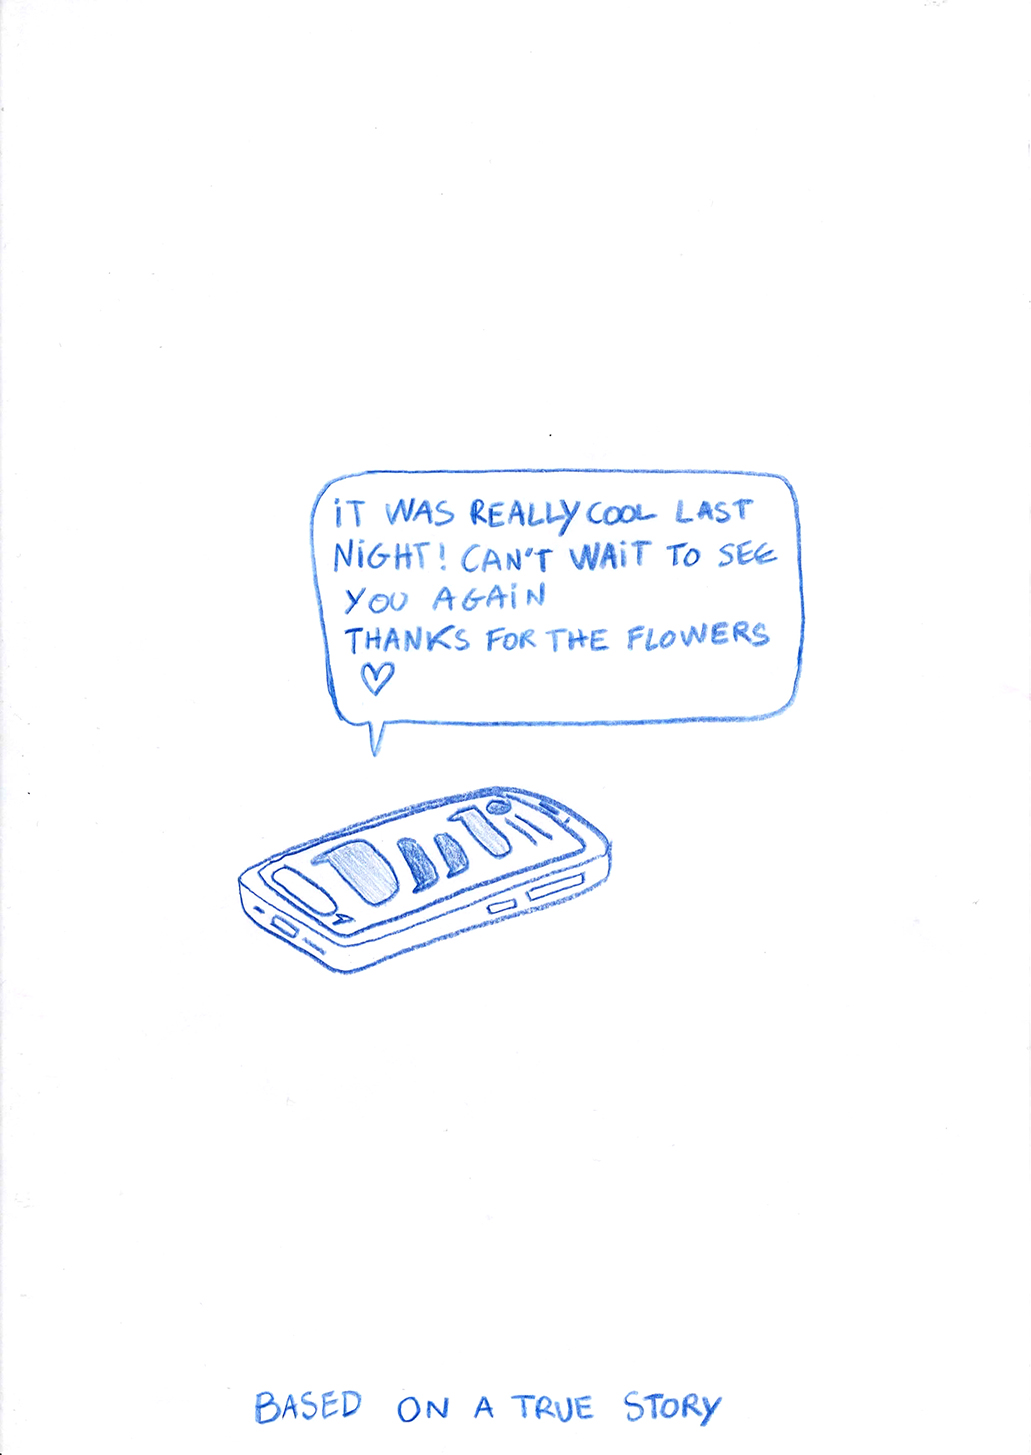 iT WAS REALLY COOL LAST
NiGHT! CAN'T WAiT TO SEE
YOU AGAiN
THANKS FOR THE FLOWERS
♡
BASED ON A TRUE STORY